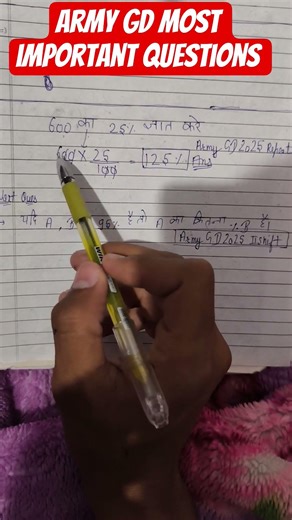 ARMY GD MOST
IMPORTANT QUESTIONS
600 का 25% ज्ञात करे
600 × 25 / 100 = 125% Ans
Army GD 2025 Repeat
Next Ques
यदि A, B 95% है तो A का कितना % B है।
Army GD 2025 II shift